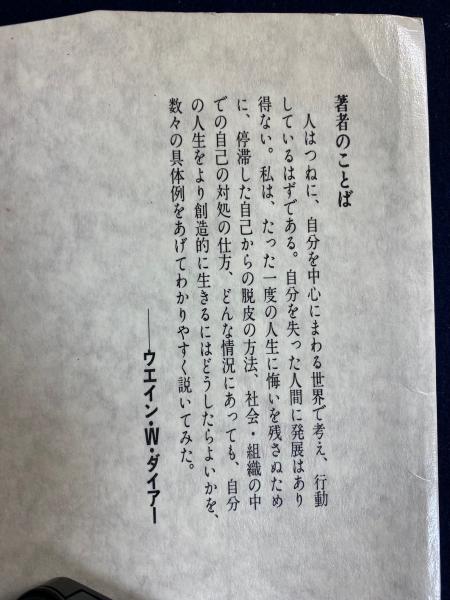 著者のことば
人はつねに、自分を中心にまわる世界で考え、行動
しているはずである。自分を失った人間に発展はあり
得ない。私は、たった一度の人生に悔いを残さぬため
に、停滞した自己からの脱皮の方法、社会・組織の中
での自己の対処の仕方、どんな情況にあっても、自分
の人生をより創造的に生きるにはどうしたらよいかを、
数々の具体例をあげてわかりやすく説いてみた。
——ウエイン・W・ダイアー